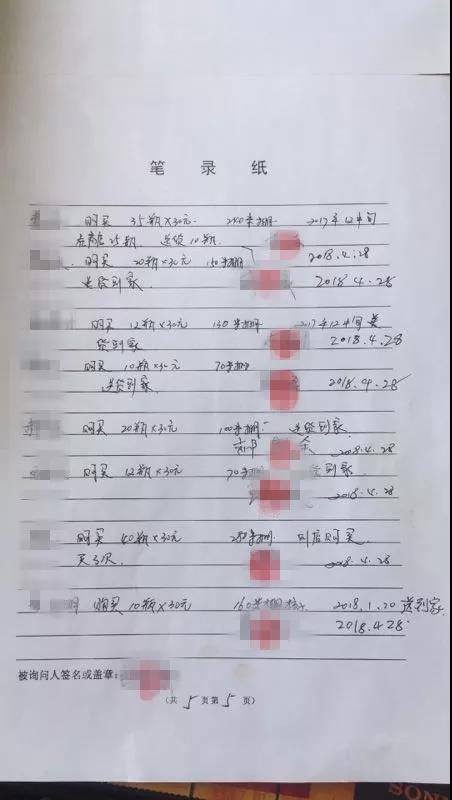 笔录纸
购买 35瓶×30元 240米棚 2017年12中旬
在商店25瓶 送货10瓶
2018.4.28
购买 20瓶×30元 150米棚
送货到家 2018.4.28
购买 12瓶×30元 130米棚 2017年12中旬送
货到家 2018.4.28
购买 10瓶×30元 70米棚
送货到家 2018.4.28
购买 20瓶×30元 100米棚 送货到家
2018.4.28
购买 12瓶×30元 70米棚 货到家
2018.4.28
购买 40瓶×30元 280米棚 到店购买
买3次 2018.4.28
购买 10瓶×30元 160米棚 2018.1.20 送到家
2018.4.28
被询问人签名或盖章:
(共 5 页第 5 页)
SON